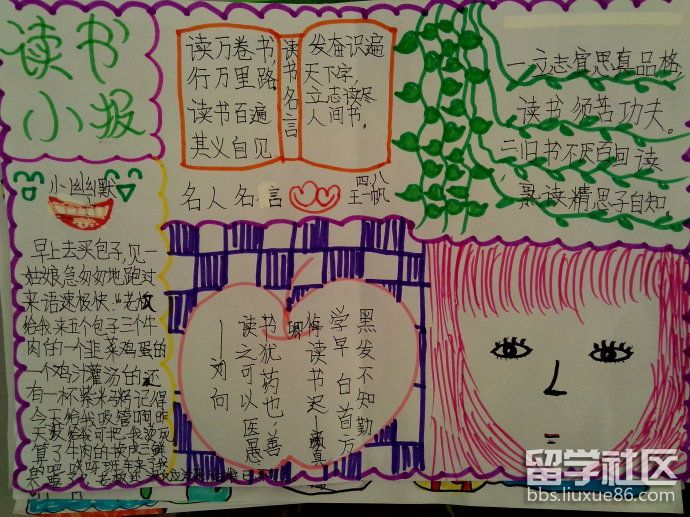 读书
小报
读万卷书,
行万里路。
读书百遍
其义自见
读书名言
发奋识遍
天下字,
立志读尽
人间书。
一立志宜思真品格,
读书须苦功夫。
二旧书不厌百回读,
熟读精思子自知。
名人名言
四八
王一帆
小幽默
早上去买包子,见一
姑娘急匆匆地跑过
来语速极快:“老板
给我来五个包子三个牛
肉的一个韭菜鸡蛋的
一个鸡汁灌汤的还
有一杯紫米粥记得
今天给我吸管啊昨
黑发不知勤
学早 白首方
悔读书迟——颜真卿
书犹药也,善
读之可以医愚
——刘向
留学社区
bbs.liuxue86.com